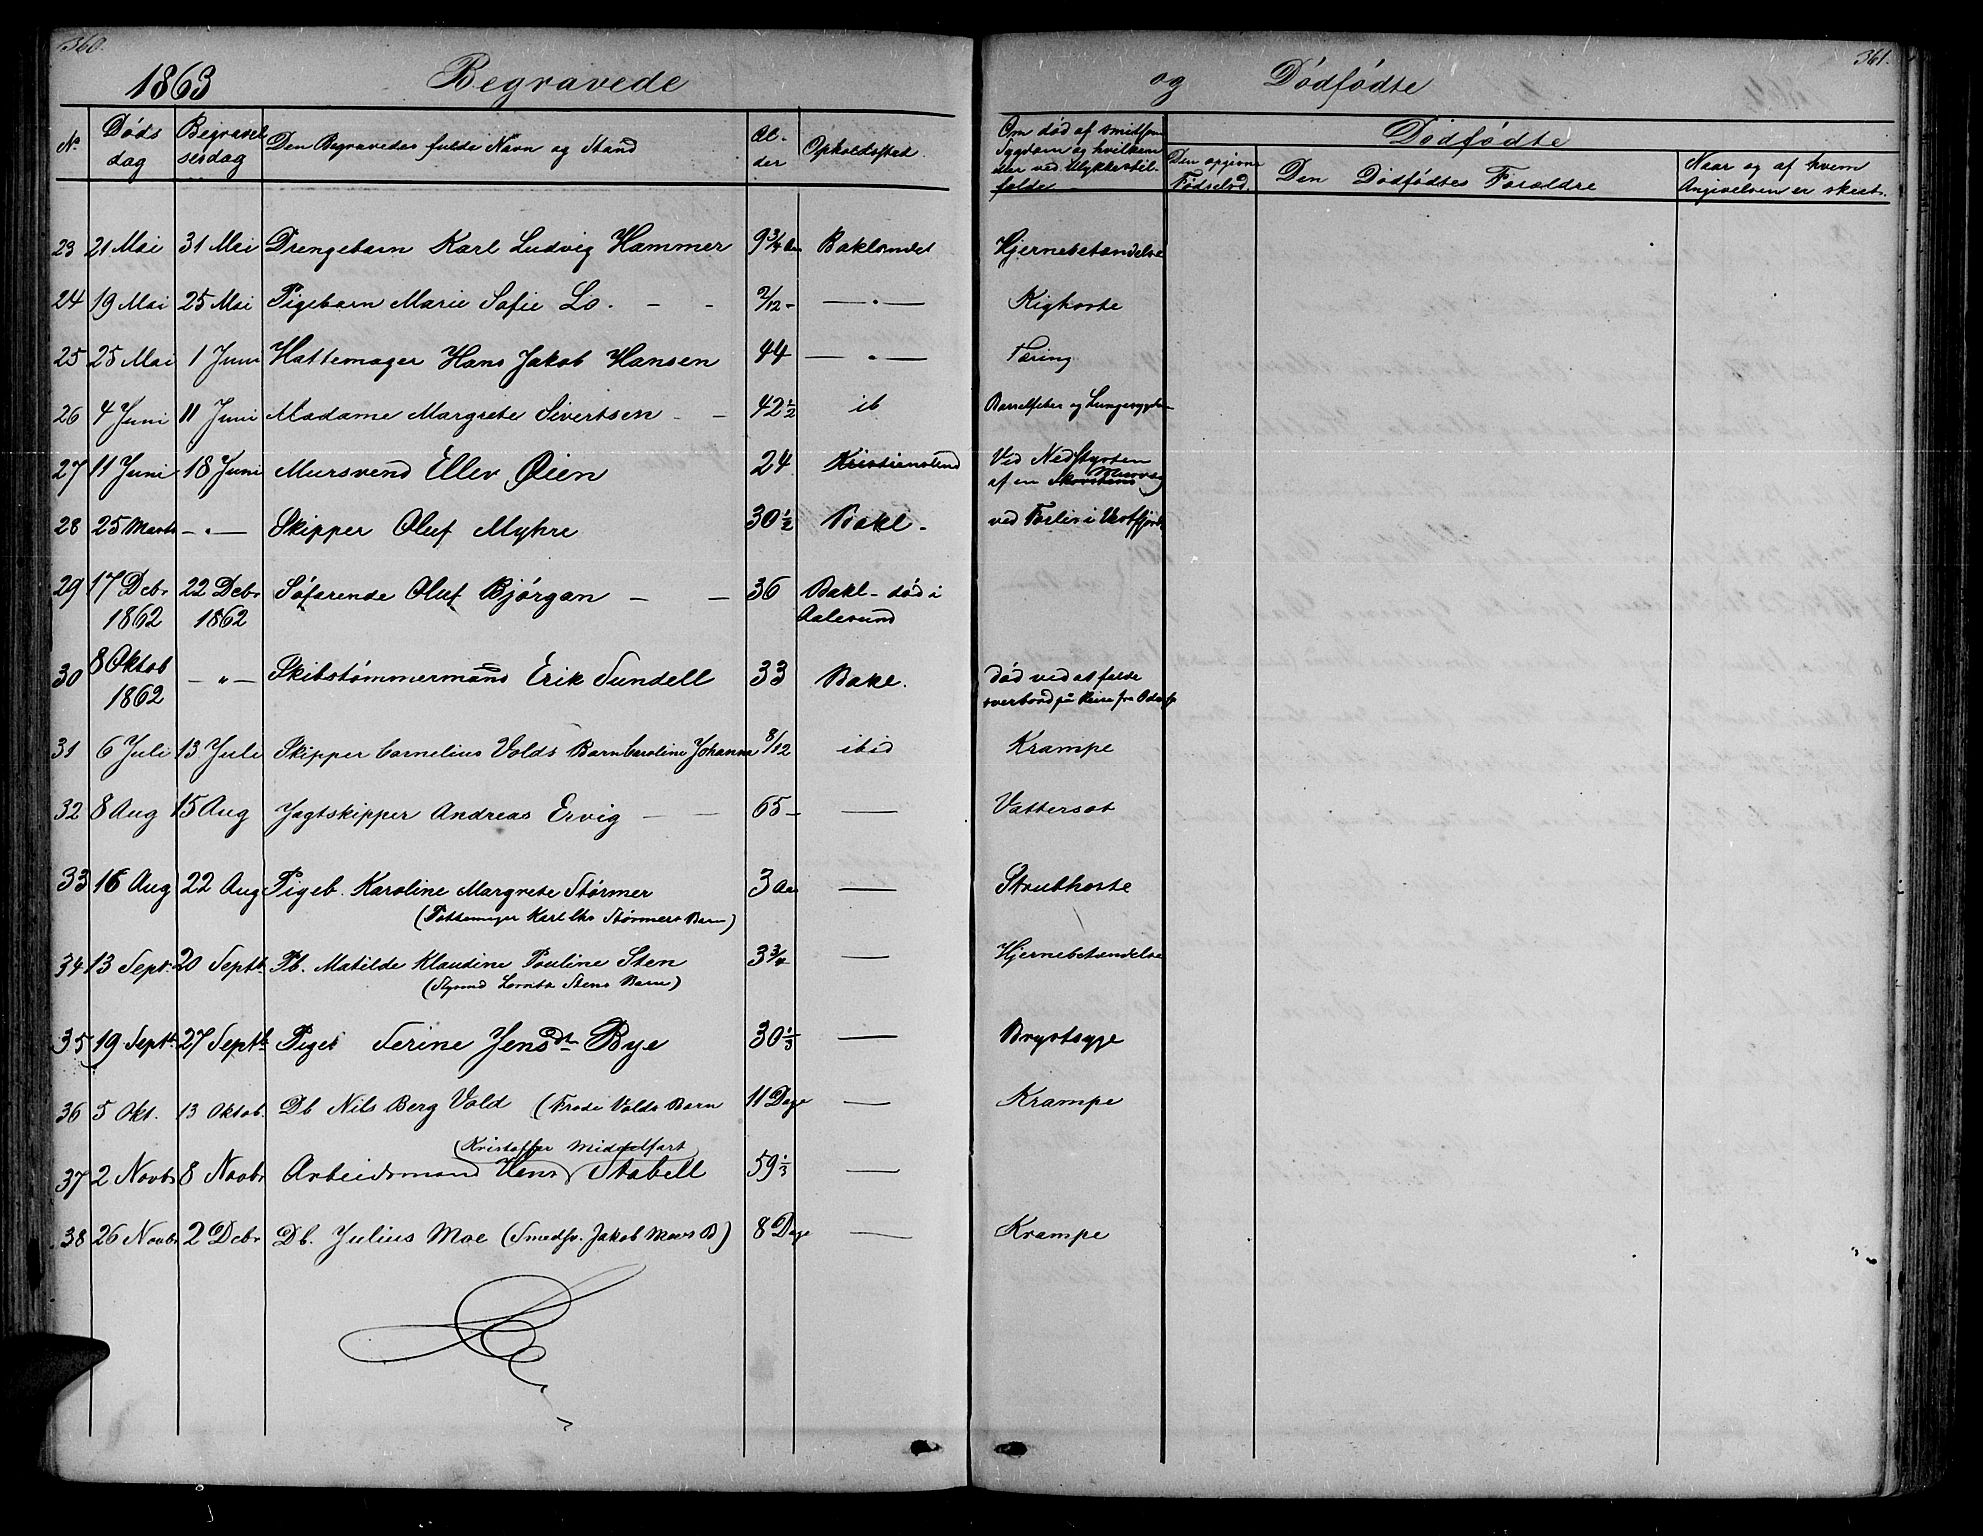 360.
1863 Begravede
No Døds dag Begravelsesdag Den Begravedes fulde Navn og Stand Alder Opholdssted
23 21 Mai 31 Mai Drengebarn Karl Ludvig Hammer 9 3/4 Aar Baklandet
24 19 Mai 25 Mai Pigebarn Marie Sofie Lo. - - 2/12 - — " —
25 25 Mai 1 Juni Hattemager Hans Jakob Hansen 44 — " —
26 4 Juni 11 Juni Madame Margrete Sivertsen - - 42 1/2 ib
27 11 Juni 18 Juni Mursvend Ellev Øien 24 Kristiansund
28 25 Marts — " — Skipper Oluf Myhre 30 1/2 Bakl -
29 17 Decbr 22 Decbr Søfarende Oluf Bjørgan — — 36 Bakl - død i
1862 1862 Aalesund
30 8 Oktob 1862 — " — Skibstømmermand Erik Sundell 33 Bakl.
31 6 Juli 13 Juli Skipper Cornelius Volds Barn Caroline Johanna 8/12 ibid
32 8 Aug 15 Aug Jagtskipper Andreas Ervig — — 65 — —
33 16 Aug 22 Aug Pigeb. Karoline Margrete Størmer 3 Aar —
(Pottemager Karl Størmers Barn)
34 13 Sept. 20 Septb. Pb. Matilde Klaudine Pouline Sten 3 3/4 —
(Styrmd Stens Barn)
35 19 Septb. 27 Septb. Pige Serine Jensdt. Bye 30 1/3 —
36 5 Okt. 13 Oktob. Db Nils Berg Vold (Frode Volds Barn 11 Dage —
(Kristoffer Middelfart)
37 2 Novb. 8 Novbr Arbeidsmand Hans Stabell 59 1/3 —
38 26 Novbr 2 Decbr Db. Julius Moe (Smedsv. Jakob Moes B) 8 Dage —
361.
og Dødfødte
Om død af smitsom Sygdom og hvilken eller ved Ulykkestilfælde
Dødfødte
Den opgivne Fødselsd. Den Dødfødtes Forældre Naar og af hvem Angivelsen er skeet.
Hjernebetændelse
Kighoste
Tæring
Barselfeber og Lungesygdom
Ved Nedstyrten
af en Skorstens Murvæg
ved Forlis i Vestfjord
død ved at falde
overbord på Reise fra
Krampe
Vattersot
Strubhoste
Hjernebetændelse
Brystsyge
Krampe
Krampe